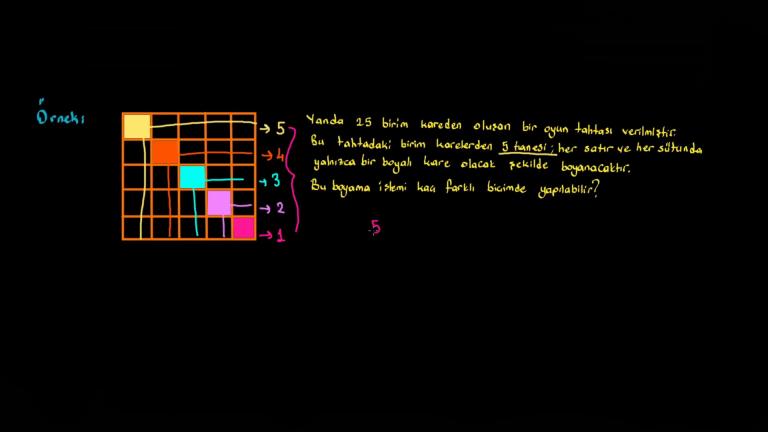 Örnek:
Yanda 25 birim kareden oluşan bir oyun tahtası verilmiştir.
Bu tahtadaki birim karelerden 5 tanesi; her satır ve her sütunda
yalnızca bir boyalı kare olacak şekilde boyanacaktır.
Bu boyama işlemi kaç farklı biçimde yapılabilir?
→ 5
→ 4
→ 3
→ 2
→ 1
5